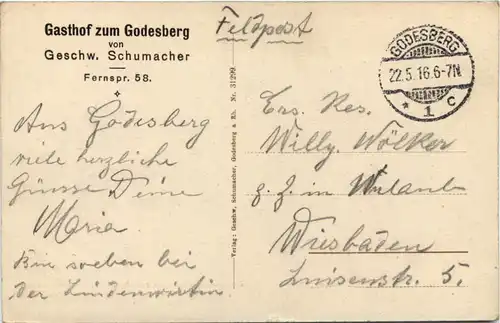 Gasthof zum Godesberg
von
Geschw. Schumacher
Fernspr. 58.
Aus Godesberg
viele herzliche
Grüsse, Deine
Maria
Bin soeben bei
der Lindenwirtin
Verlag: Geschw. Schumacher, Godesberg a. Rh. Nr. 31299
Feldpost
GODESBERG
22.5.16.6-7N
* 1 c
Ers. Res.
Willy Wölker
z. Z. in Urlaub
Wiesbaden
Luisenstr. 5.